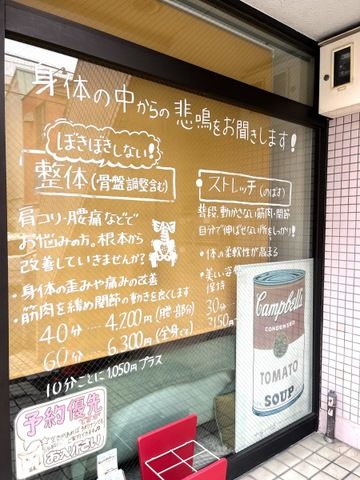 身体の中からの悲鳴をお聞きします!
ぼきぼきしない!
整体(骨盤調整含む)
肩コリ・腰痛などで
お悩みの方。根本から
改善していきませんか?
・身体の歪みや痛みの改善
・筋肉を緩め関節の動きを良くします
40分……4,200円(腰・部分)
60分……6,300円(全身)
10分ごとに1,050円プラス
ストレッチ(のばす)
普段、動かさない筋肉・関節
自分で伸ばせない所をしっかり!
・体の柔軟性が高まる
・美しい姿
保持
30分
3150
Campbell's
CONDENSED
TOMATO
SOUP
予約優先
お入り下さい